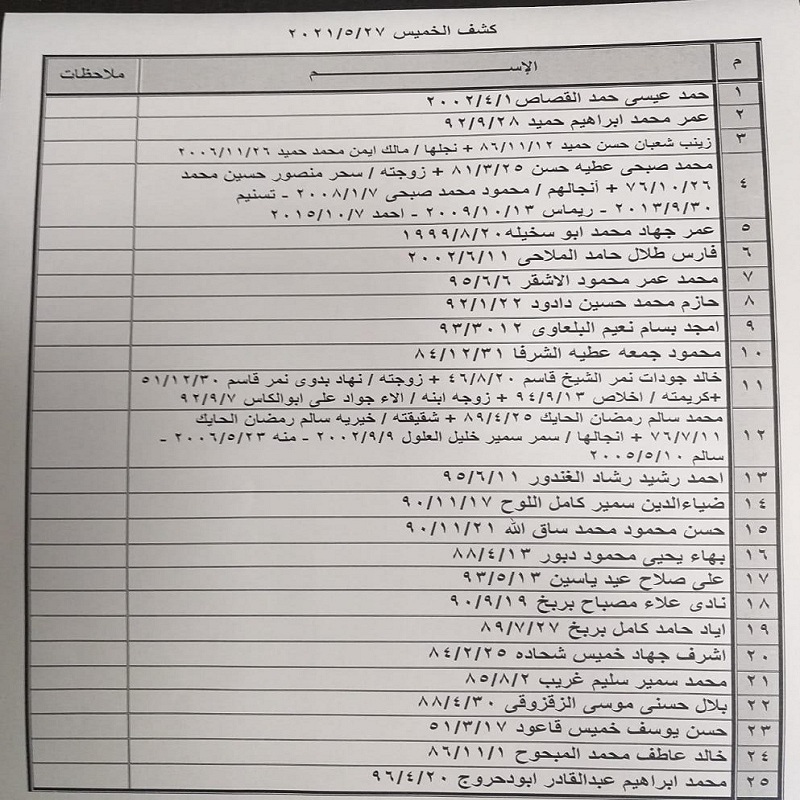 كشف الخميس ٢٠٢١/٥/٢٧
م الإســـــــــم ملاحظات
١ حمد عيسى حمد القصاص ٢٠٠٢/٤/١
٢ عمر محمد ابراهيم حميد ٩٢/٩/٢٨
٣ زينب شعبان حسن حميد ٨٦/١١/١٢ + نجلها / مالك ايمن محمد حميد ٢٠٠٦/١١/٢٦
٤ محمد صبحى عطيه حسن ٨١/٣/٢٥ + زوجته / سحر منصور حسين محمد
٧٦/١٠/٢٦ + أنجالهم / محمود محمد صبحى ٢٠٠٨/١/٧ - تسنيم
٢٠١٣/٩/٣٠ - ريماس ٢٠٠٩/١٠/١٣ - احمد ٢٠١٥/١٠/٧
٥ عمر جهاد محمد ابو سخيله ١٩٩٩/٨/٢٠
٦ فارس طلال حامد الملاحى ٢٠٠٢/٦/١١
٧ محمد عمر محمود الاشقر ٩٥/٦/٦
٨ حازم محمد حسين دادود ٩٢/١/٢٢
٩ امجد بسام نعيم البلعاوى ٩٣/٣٠١٢
١٠ محمود جمعه عطيه الشرفا ٨٤/١٢/٣١
١١ خالد جودات نمر الشيخ قاسم ٤٦/٨/٢٠ + زوجته / نهاد بدوى نمر قاسم ٥١/١٢/٣٠
+كريمته / اخلاص ٩٤/٩/١٣ + زوجه ابنه / الاء جواد على ابوالكاس ٩٢/٩/٧
١٢ محمد سالم رمضان الحايك ٨٩/٤/٢٥ + شقيقته / خيريه سالم رمضان الحايك
٧٦/٧/١١ + انجالها / سمر سمير خليل العلول ٢٠٠٢/٩/٩ - منه ٢٠٠٦/٥/٢٣ -
سالم ٢٠٠٥/٥/١٠
١٣ احمد رشيد رشاد الغندور ٩٥/٦/١١
١٤ ضياءالدين سمير كامل اللوح ٩٠/١١/١٧
١٥ حسن محمود محمد ساق الله ٩٠/١١/٢١
١٦ بهاء يحيى محمود دبور ٨٨/٤/١٣
١٧ على صلاح عيد ياسين ٩٣/٥/١٣
١٨ نادى علاء مصباح بربخ ٩٠/٩/١٩
١٩ اياد حامد كامل بربخ ٨٩/٧/٢٧
٢٠ اشرف جهاد خميس شحاده ٨٤/٢/٢٥
٢١ محمد سمير سليم غريب ٨٥/٨/٢
٢٢ بلال حسنى موسى الزقزوقى ٨٨/٤/٣٠
٢٣ حسن يوسف خميس قاعود ٥١/٣/١٧
٢٤ خالد عاطف محمد المبحوح ٨٦/١١/١
٢٥ محمد ابراهيم عبدالقادر ابودحروج ٩٦/٤/٢٠